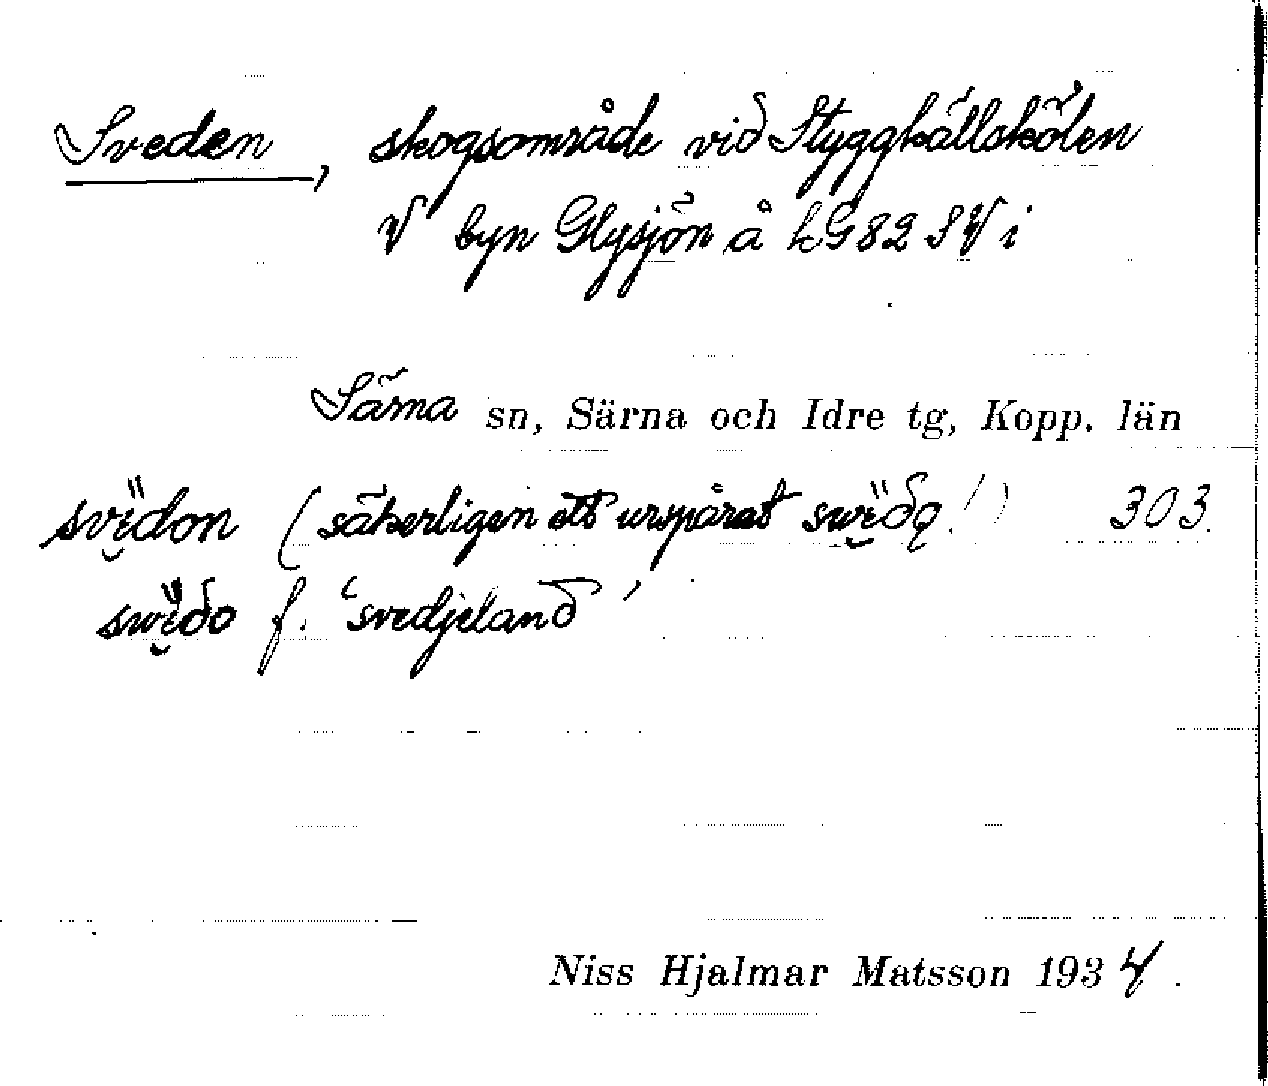 Sveden, skogsområde vid Styggkällskölen
V byn Glysjön å LG 82 SV i
Särna sn, Särna och Idre tg, Kopp. län
(säkerligen ett urspårat 303.
f. 'svedjeland'
Niss Hjalmar Matsson 1934.